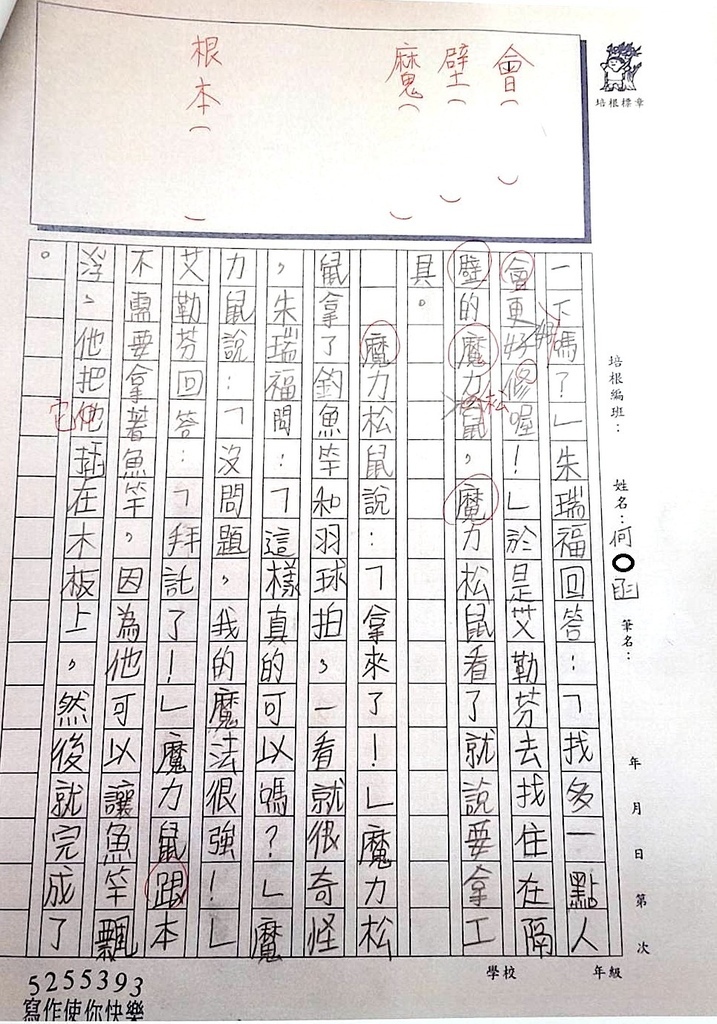 會（ ）
壁（ ）
魔（ ）
根本（ ）
培根標章
培根編班：
姓名：何○函
筆名：
年 月 日 第 次
學校
年級
一下嗎？」朱瑞福回答：「找多一點人
會更好修喔！」於是艾勒芬去找住在隔
壁的魔力松鼠，魔力松鼠看了就說要拿工
具。
魔力松鼠說：「拿來了！」魔力松
鼠拿了釣魚竿和羽球拍，一看就很奇怪
，朱瑞福問：「這樣真的可以嗎？」魔
力鼠說：「沒問題，我的魔法很強！」
艾勒芬回答：「拜託了！」魔力鼠跟本
不需要拿著魚竿，因為他可以讓魚竿飄
浮，他把他插在木板上，然後就完成了
。
松
它
5255393
寫作使你快樂